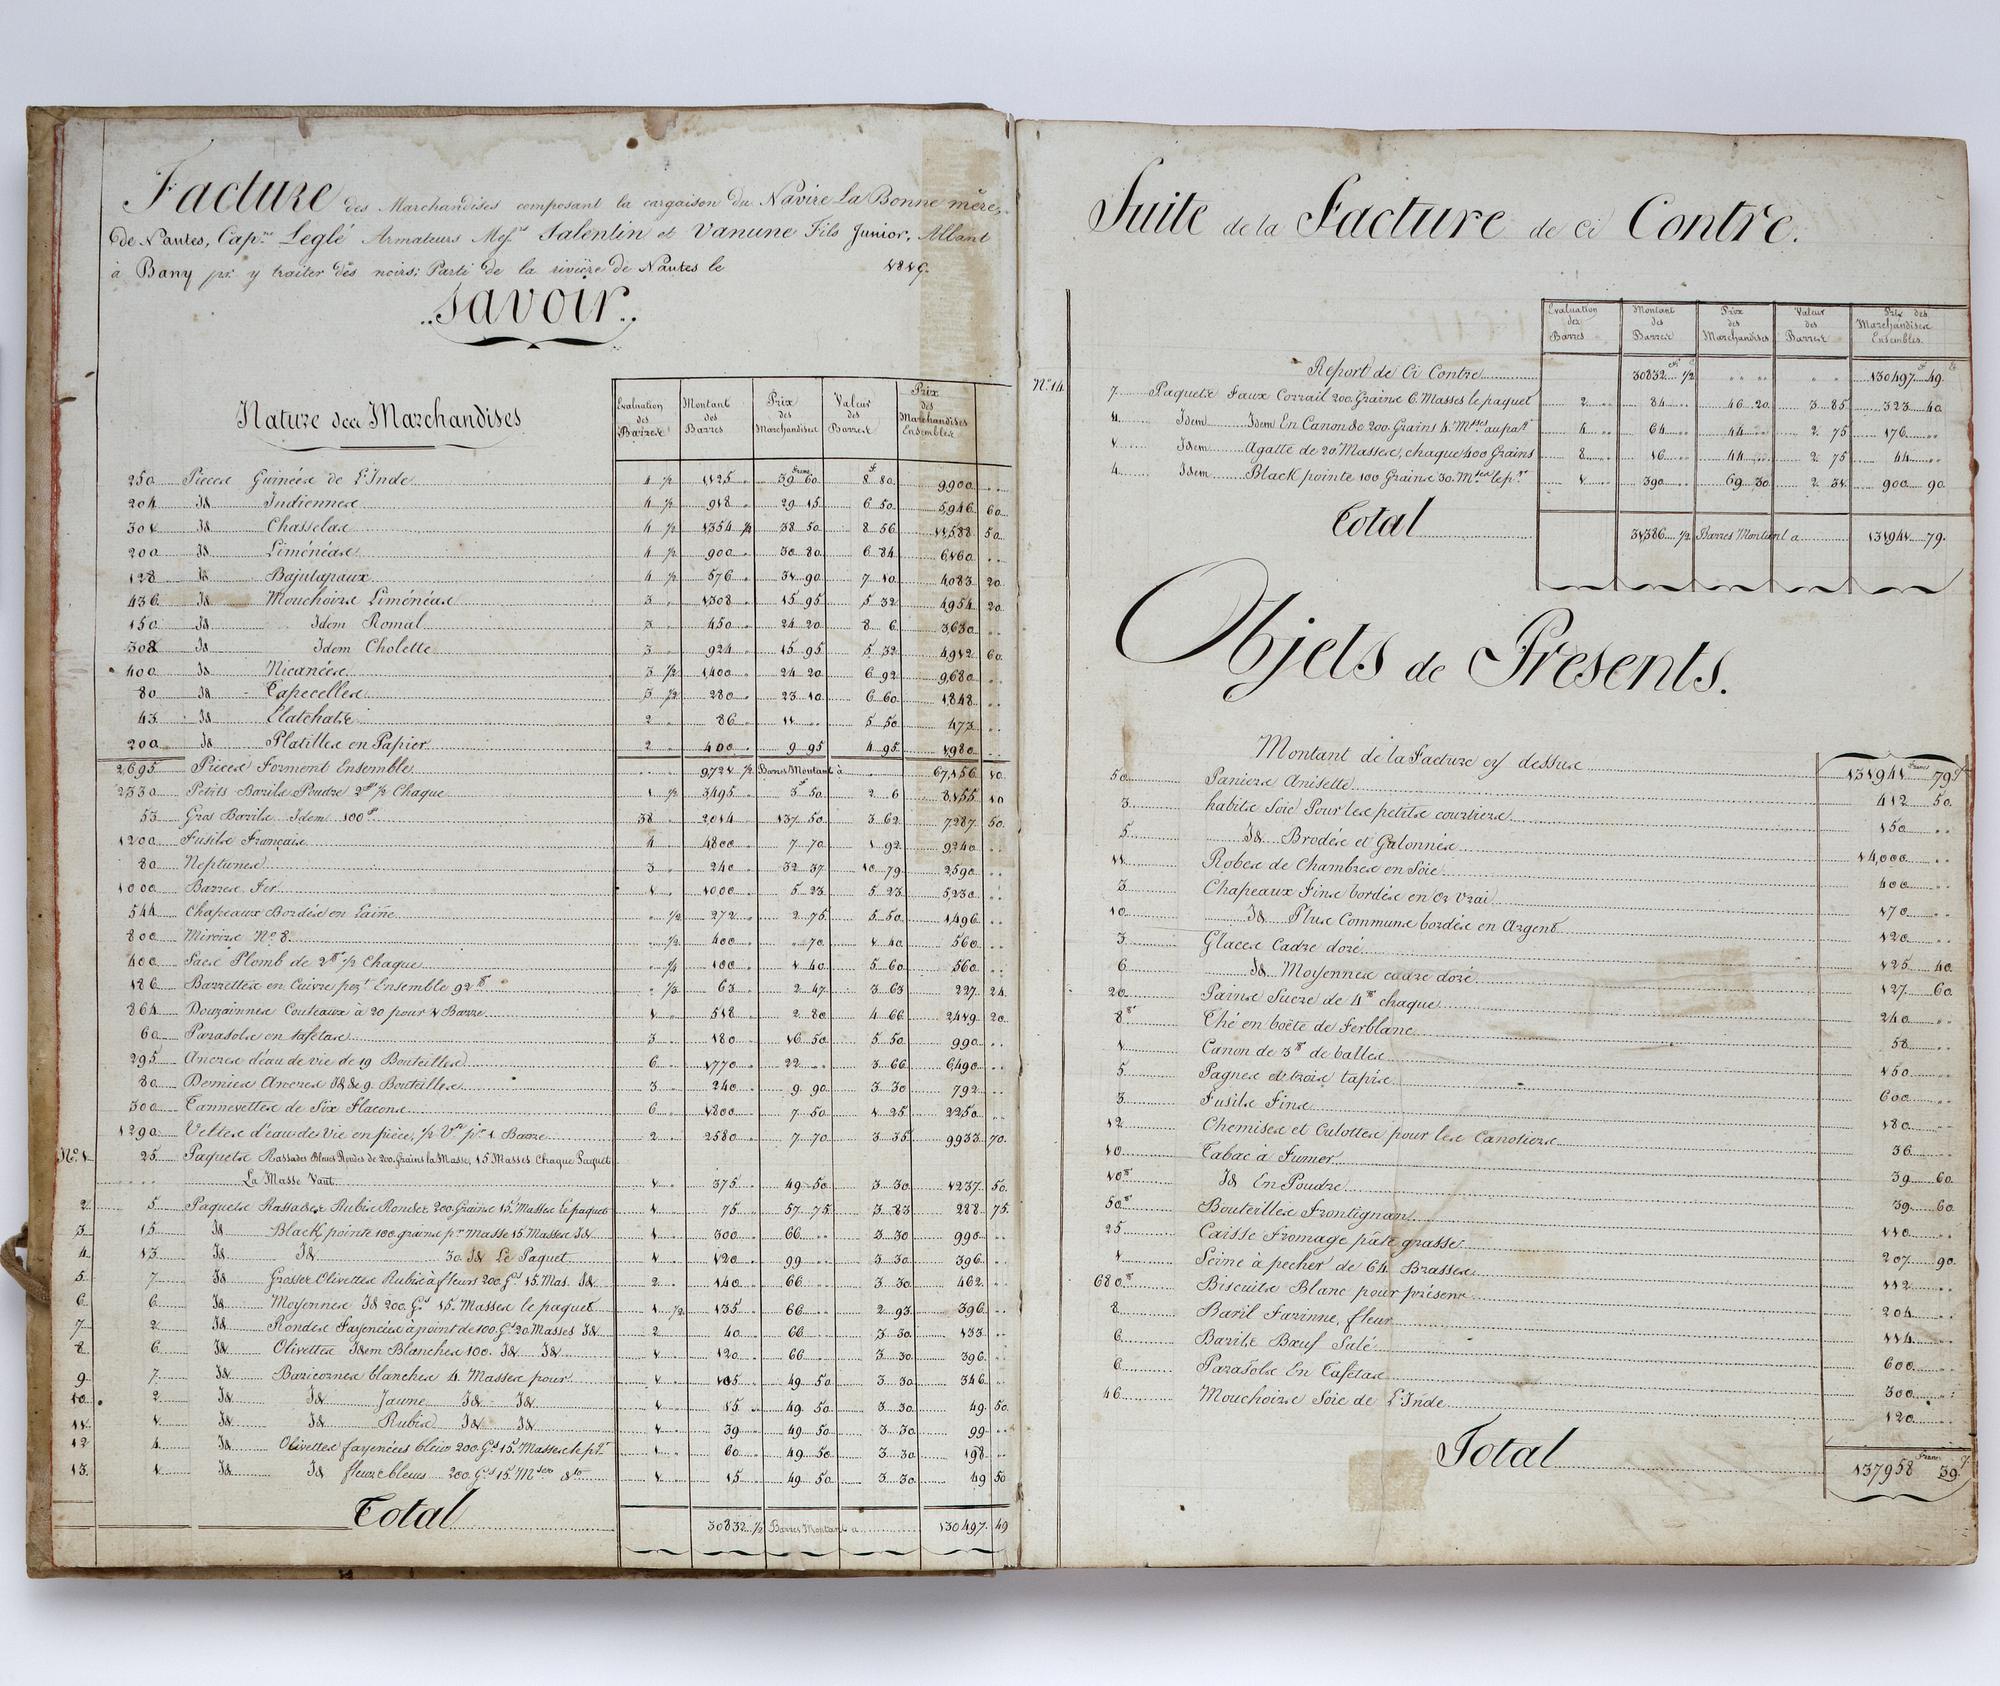 Facture des Marchandises composant la cargaison du Navire La Bonne mère,
de Nantes, Cap.ne Leglé Armateurs Mes.rs Salentin et Vanune Fils Junior, Allant
à Bany pr. y traiter des noirs; Parti de la rivière de Nantes le 1819.
Savoir
Nature des Marchandises
Evaluation des Barres
Montant des Barres
Prix des Marchandises
Valeur des Barres
Prix des Marchandises Ensembles
250 Pieces Guinées de L'Inde 4 1/2 1125 39 60 8 80 9900
204 Id Indiennes 4 1/2 918 29 15 6 50 5,946 60
301 Id Chasselas 4 1/2 1354 1/2 38 50 8 56 11,588 50
200 Id Liménéas 4 1/2 900 30 80 6 84 6,160
128 Id Bajutapaux 4 1/2 576 31 90 7 10 4083 20
436 Id Mouchoirs Liménéas 3 1308 15 95 5 32 6954 20
150 Id Idem Romal 3 450 24 20 8 6 3,630
308 Id Idem Cholette 3 924 15 95 5 32 4912 60
400 Id Nicanées 3 1/2 1400 24 20 6 92 9,680
80 Id Tapecelles 3 1/2 280 23 10 6 60 1848
43 Id Llatchats 2 86 11 5 50 473
200 Id Platilles en Papier 2 400 9 95 4 95 1,980
2695 Pieces Forment Ensemble 9,721 1/2 Barres Montant à 67,156 10
2330 Petits Barils Poudre 2 1/2 Chaque 1 1/2 3,495 3 50 2 6 8,155 10
53 Gros Barils Idem 100 38 2014 137 50 3 62 7287 50
1200 Fusils Français 4 4800 7 70 1 92 9,240
80 Neptunes 3 240 32 37 10 79 2590
1000 Barres Fer 1 1000 5 23 5 23 5,230
544 Chapeaux Bordés en Laine 1/2 272 2 75 5 50 1,496
800 Miroirs No. 8 1/2 400 70 1 40 560
400 Sacs Plomb de 2 1/2 Chaque 1/4 100 1 40 5 60 560
126 Barrettes en Cuivre pez.t Ensemble 92 1/3 63 2 47 3 63 227 24
864 Douzainnes Couteaux à 20 pour 1 Barre 1 518 2 80 4 66 2419 20
60 Parasols en tafetas 3 180 16 50 5 50 990
295 Ancres d'eau de vie de 19 Bouteilles 6 1770 22 3 66 6,490
80 Demies Ancres Id de 9 Bouteilles 3 240 9 90 3 30 792
300 Cannevettes de Six Flacons 6 1800 7 50 1 25 2250
1290 Veltes d'eau de Vie en pièce, 1/2 V.te pr. 1 Barre 2 2580 7 70 3 35 9933 70
No. 1 25 Paquets Rassades Bleues Rondes de 200 Grains la Masse, 15 Masses Chaque Paquet
La Masse Vaut 1 375 49 50 3 30 1237 50
2 5 Paquets Rassades Rubis Rondes 200 Grains 15 Masses le paquet 1 75 57 75 3 83 288 75
3 15 Id Black pointe 100 grains pr. Masse 15 Masses Id 1 300 66 3 30 990
4 13 Id Id 30 Id Le Paquet 1 120 99 3 30 396
5 7 Id Grosses Olivettes Rubis à fleurs 200 G.s 15 Mas. Id 2 140 66 3 30 462
6 6 Id Moyennes Id 200 G.s 15 Masses le paquet 1 1/2 135 66 2 93 396
7 2 Id Rondes Fayencées à point de 100 G.s 20 Masses Id 2 40 66 3 30 133
8 6 Id Olivettes Idem Blanches 100 Id Id 1 120 66 3 30 396
9 7 Id Baricornes blanches 4 Masses pour 1 105 49 50 3 30 346
10 2 Id Id Jaune Id Id 1 15 49 50 3 30 49 50
11 1 Id Id Rubis Id Id 1 39 49 50 3 30 99
12 4 Id Olivettes fayencées bleus 200 G.s 15 Masses le pt. 1 60 49 50 3 30 198
13 1 Id Id fleurs bleues 200 G.s 15 M.ses d.to 1 15 49 50 3 30 49 50
Total 30832 1/2 Barres Montant a 130497 49
Suite de la Facture de Ci Contre.
Evaluation des Barres
Montant des Barres
Prix des Marchandises
Valeur des Barres
Prix des Marchandises Ensembles
Report de Ci Contre 30832 1/2 130497 49
No. 14 7 Paquets Faux Corrail 200 Grains 6 Masses le paquet 2 84 46 20 3 85 323 40
4 Idem Idem En Canon de 200 Grains 4 M.sses au pat. 4 64 44 2 75 176
1 Idem Agatte de 20 Masses, chaque 400 Grains 8 16 44 2 75 44
4 Idem Black pointe 100 Grains 30 M.ses le pt. 1 390 69 30 2 31 900 90
Total 31386 1/2 Barres Montant a 131941 79
Objets de Presents.
Montant de la Facture cy dessus 131941 Francs 79
50 Paniers Anisette 412 50
3 habits Soie Pour les petits courtiers 150
5 Id Brodés et Galonnés 1,000
11 Robes de Chambres en Soie 400
3 Chapeaux Fins bordés en Or Vrai 170
10 Id Plus Communs bordés en Argent 120
3 Glaces Cadre doré 125 40
6 Id Moyennes cadre doré 127 60
20 Pains Sucre de 4 chaque 240
8 Thé en boëte de Ferblanc 58
1 Canon de 3 de balles 150
5 Pagnes de trois tapis 600
3 Fusils Fins 180
12 Chemises et Culottes pour les Canotiers 36
10 Tabac à Fumer 39 60
10 Id En Poudre 39 60
50 Bouteilles Frontignan 110
25 Caisse Fromage pâte grasse 207 90
1 Seine à pecher de 64 Brasses 112
680 Biscuits Blanc pour présent 204
8 Baril Farinne, fleur 114
6 Barils Bœuf Salé 600
6 Parasols En Tafetas 300
46 Mouchoirs Soie de L'Inde 120
Total 137958 Francs 39